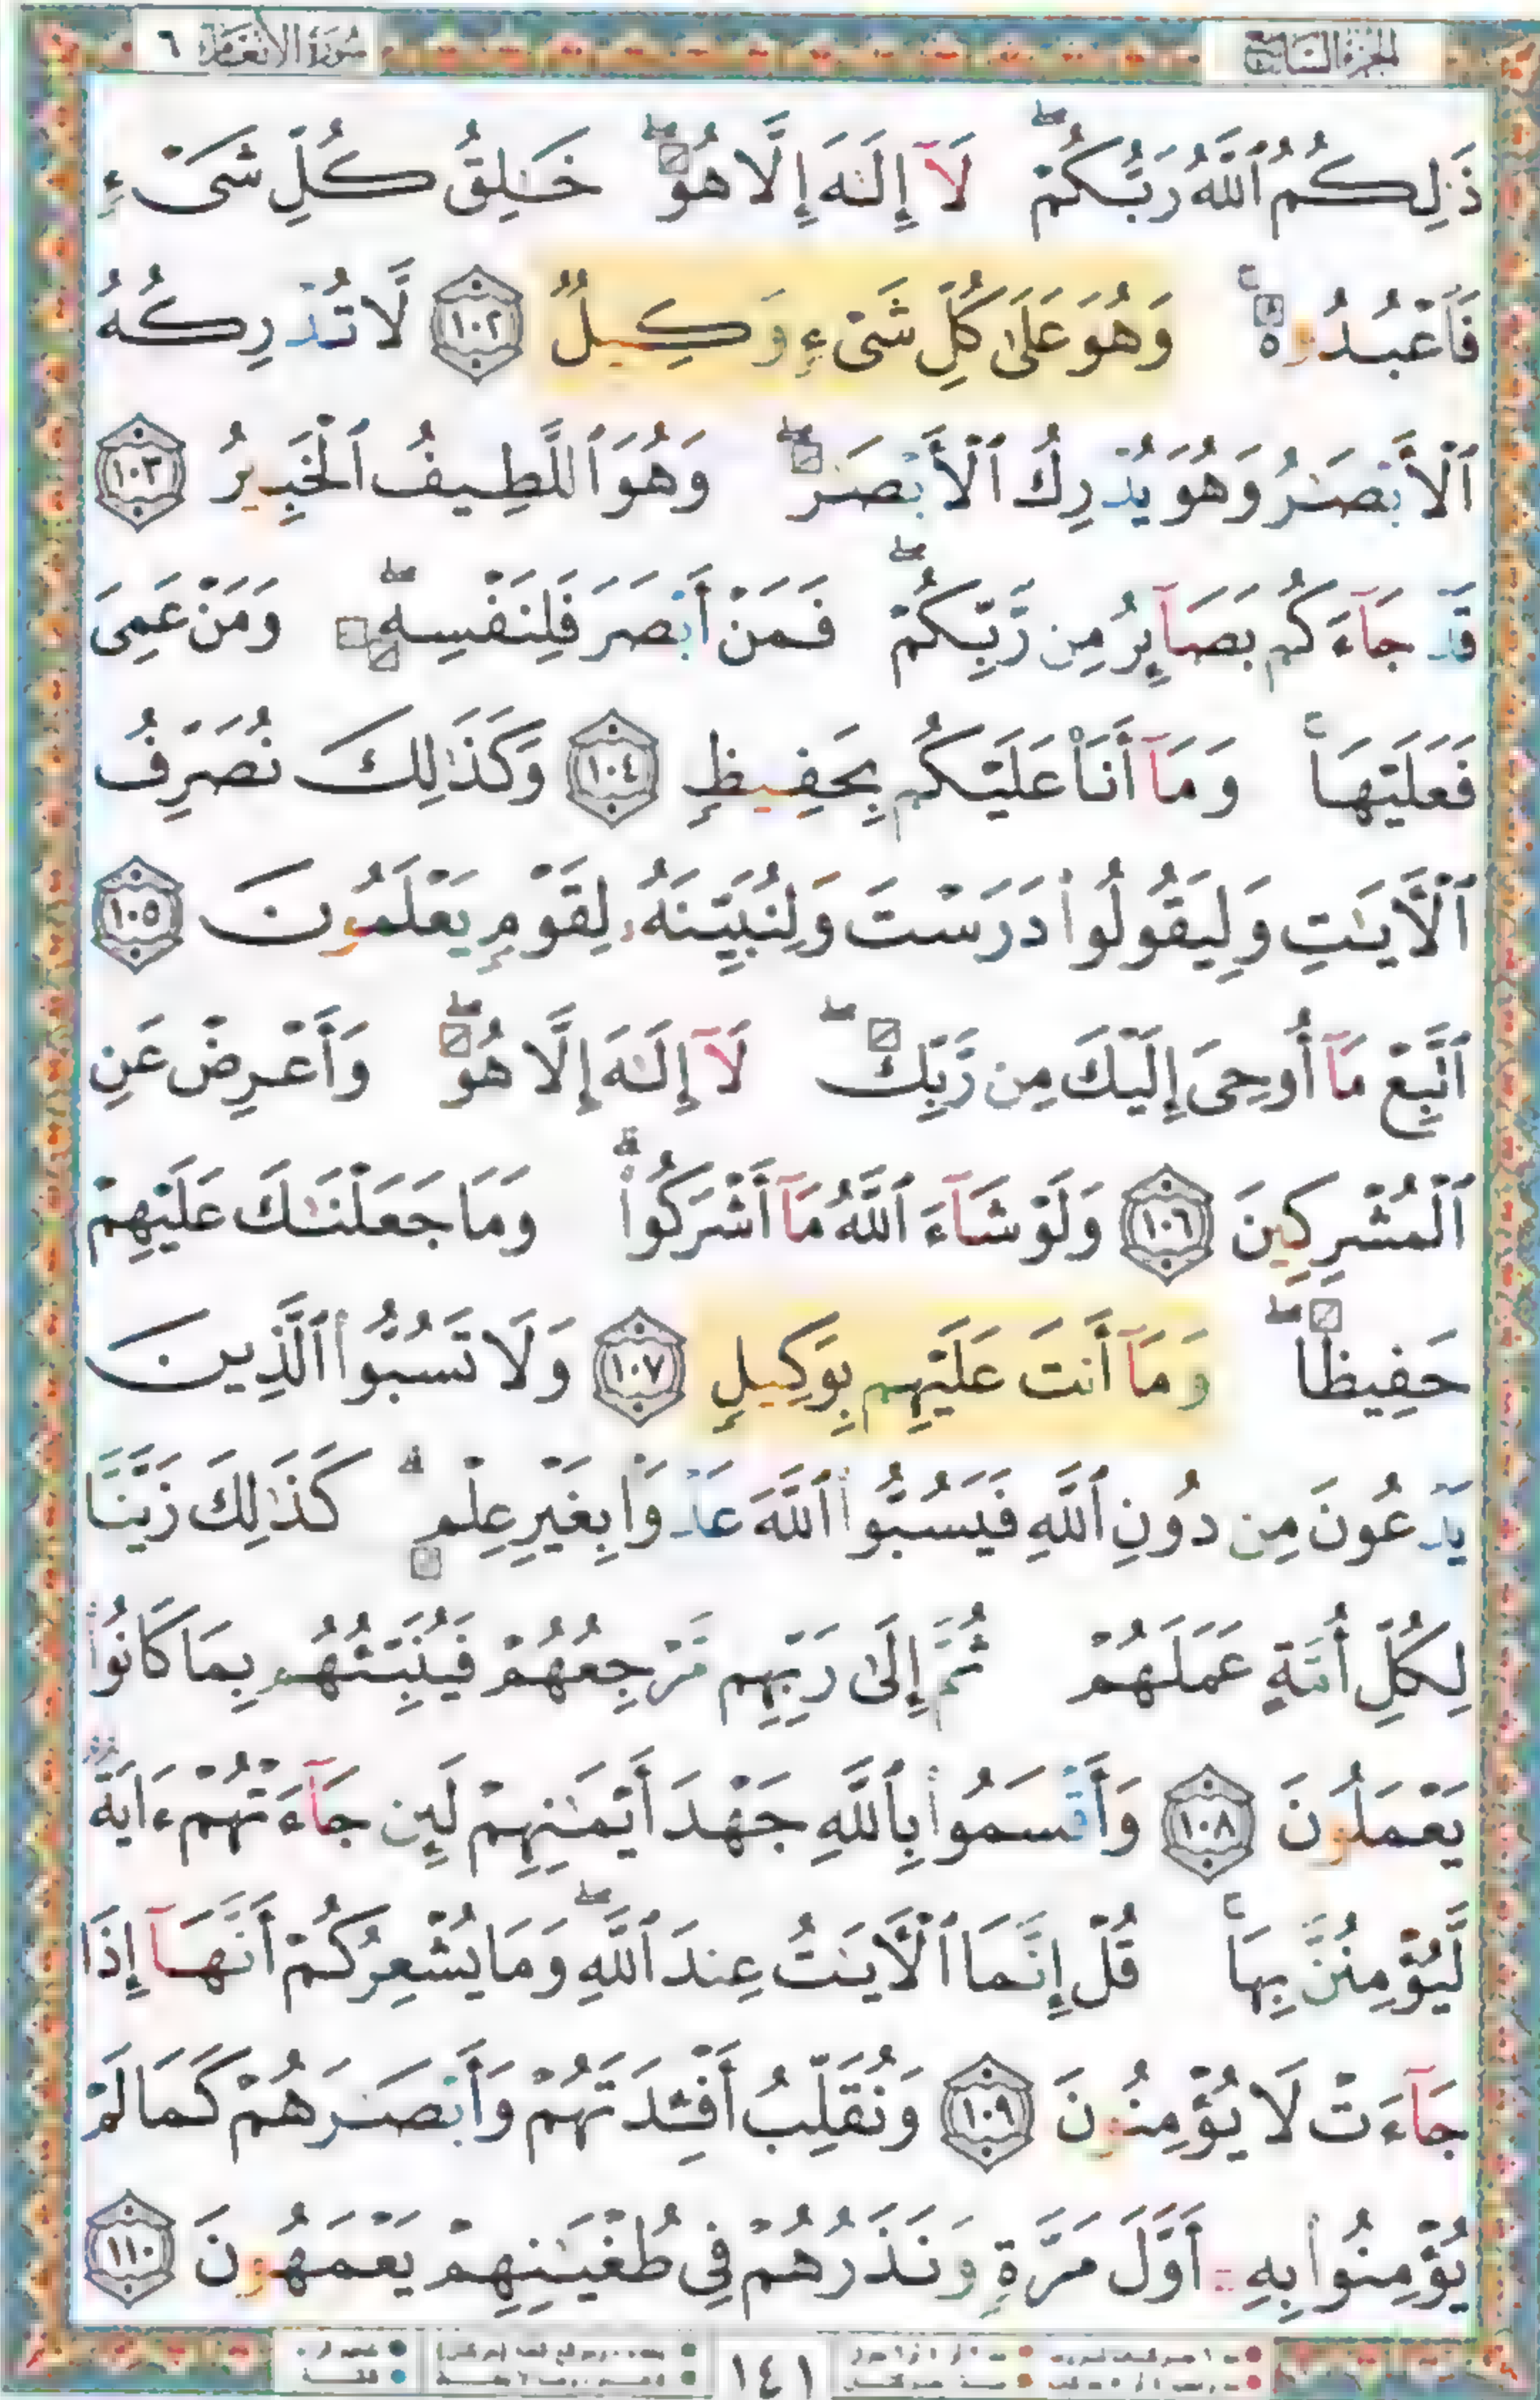 الجزء السابع
سورة الأنعام ٦
ذَٰلِكُمُ ٱللَّهُ رَبُّكُمْ ۖ لَآ إِلَٰهَ إِلَّا هُوَ ۖ خَٰلِقُ كُلِّ شَىْءٍ
فَٱعْبُدُوهُ ۚ وَهُوَ عَلَىٰ كُلِّ شَىْءٍ وَكِيلٌ ١٠٢ لَّا تُدْرِكُهُ
ٱلْأَبْصَٰرُ وَهُوَ يُدْرِكُ ٱلْأَبْصَٰرَ ۖ وَهُوَ ٱللَّطِيفُ ٱلْخَبِيرُ ١٠٣
قَدْ جَآءَكُم بَصَآئِرُ مِن رَّبِّكُمْ ۖ فَمَنْ أَبْصَرَ فَلِنَفْسِهِ ۖ وَمَنْ عَمِىَ
فَعَلَيْهَا ۚ وَمَآ أَنَا۠ عَلَيْكُم بِحَفِيظٍ ١٠٤ وَكَذَٰلِكَ نُصَرِّفُ
ٱلْأَيَٰتِ وَلِيَقُولُوا۟ دَرَسْتَ وَلِنُبَيِّنَهُۥ لِقَوْمٍ يَعْلَمُونَ ١٠٥
ٱتَّبِعْ مَآ أُوحِىَ إِلَيْكَ مِن رَّبِّكَ ۖ لَآ إِلَٰهَ إِلَّا هُوَ ۖ وَأَعْرِضْ عَنِ
ٱلْمُشْرِكِينَ ١٠٦ وَلَوْ شَآءَ ٱللَّهُ مَآ أَشْرَكُوا۟ ۗ وَمَا جَعَلْنَٰكَ عَلَيْهِمْ
حَفِيظًا ۖ وَمَآ أَنتَ عَلَيْهِم بِوَكِيلٍ ١٠٧ وَلَا تَسُبُّوا۟ ٱلَّذِينَ
يَدْعُونَ مِن دُونِ ٱللَّهِ فَيَسُبُّوا۟ ٱللَّهَ عَدْوًۢا بِغَيْرِ عِلْمٍ ۗ كَذَٰلِكَ زَيَّنَّا
لِكُلِّ أُمَّةٍ عَمَلَهُمْ ثُمَّ إِلَىٰ رَبِّهِم مَّرْجِعُهُمْ فَيُنَبِّئُهُم بِمَا كَانُوا۟
يَعْمَلُونَ ١٠٨ وَأَقْسَمُوا۟ بِٱللَّهِ جَهْدَ أَيْمَٰنِهِمْ لَئِن جَآءَتْهُمْ ءَايَةٌ
لَّيُؤْمِنُنَّ بِهَا ۚ قُلْ إِنَّمَا ٱلْأَيَٰتُ عِندَ ٱللَّهِ ۖ وَمَا يُشْعِرُكُمْ أَنَّهَآ إِذَا
جَآءَتْ لَا يُؤْمِنُونَ ١٠٩ وَنُقَلِّبُ أَفْـِٔدَتَهُمْ وَأَبْصَٰرَهُمْ كَمَا لَمْ
يُؤْمِنُوا۟ بِهِۦٓ أَوَّلَ مَرَّةٍ وَنَذَرُهُمْ فِى طُغْيَٰنِهِمْ يَعْمَهُونَ ١١٠
١٤١